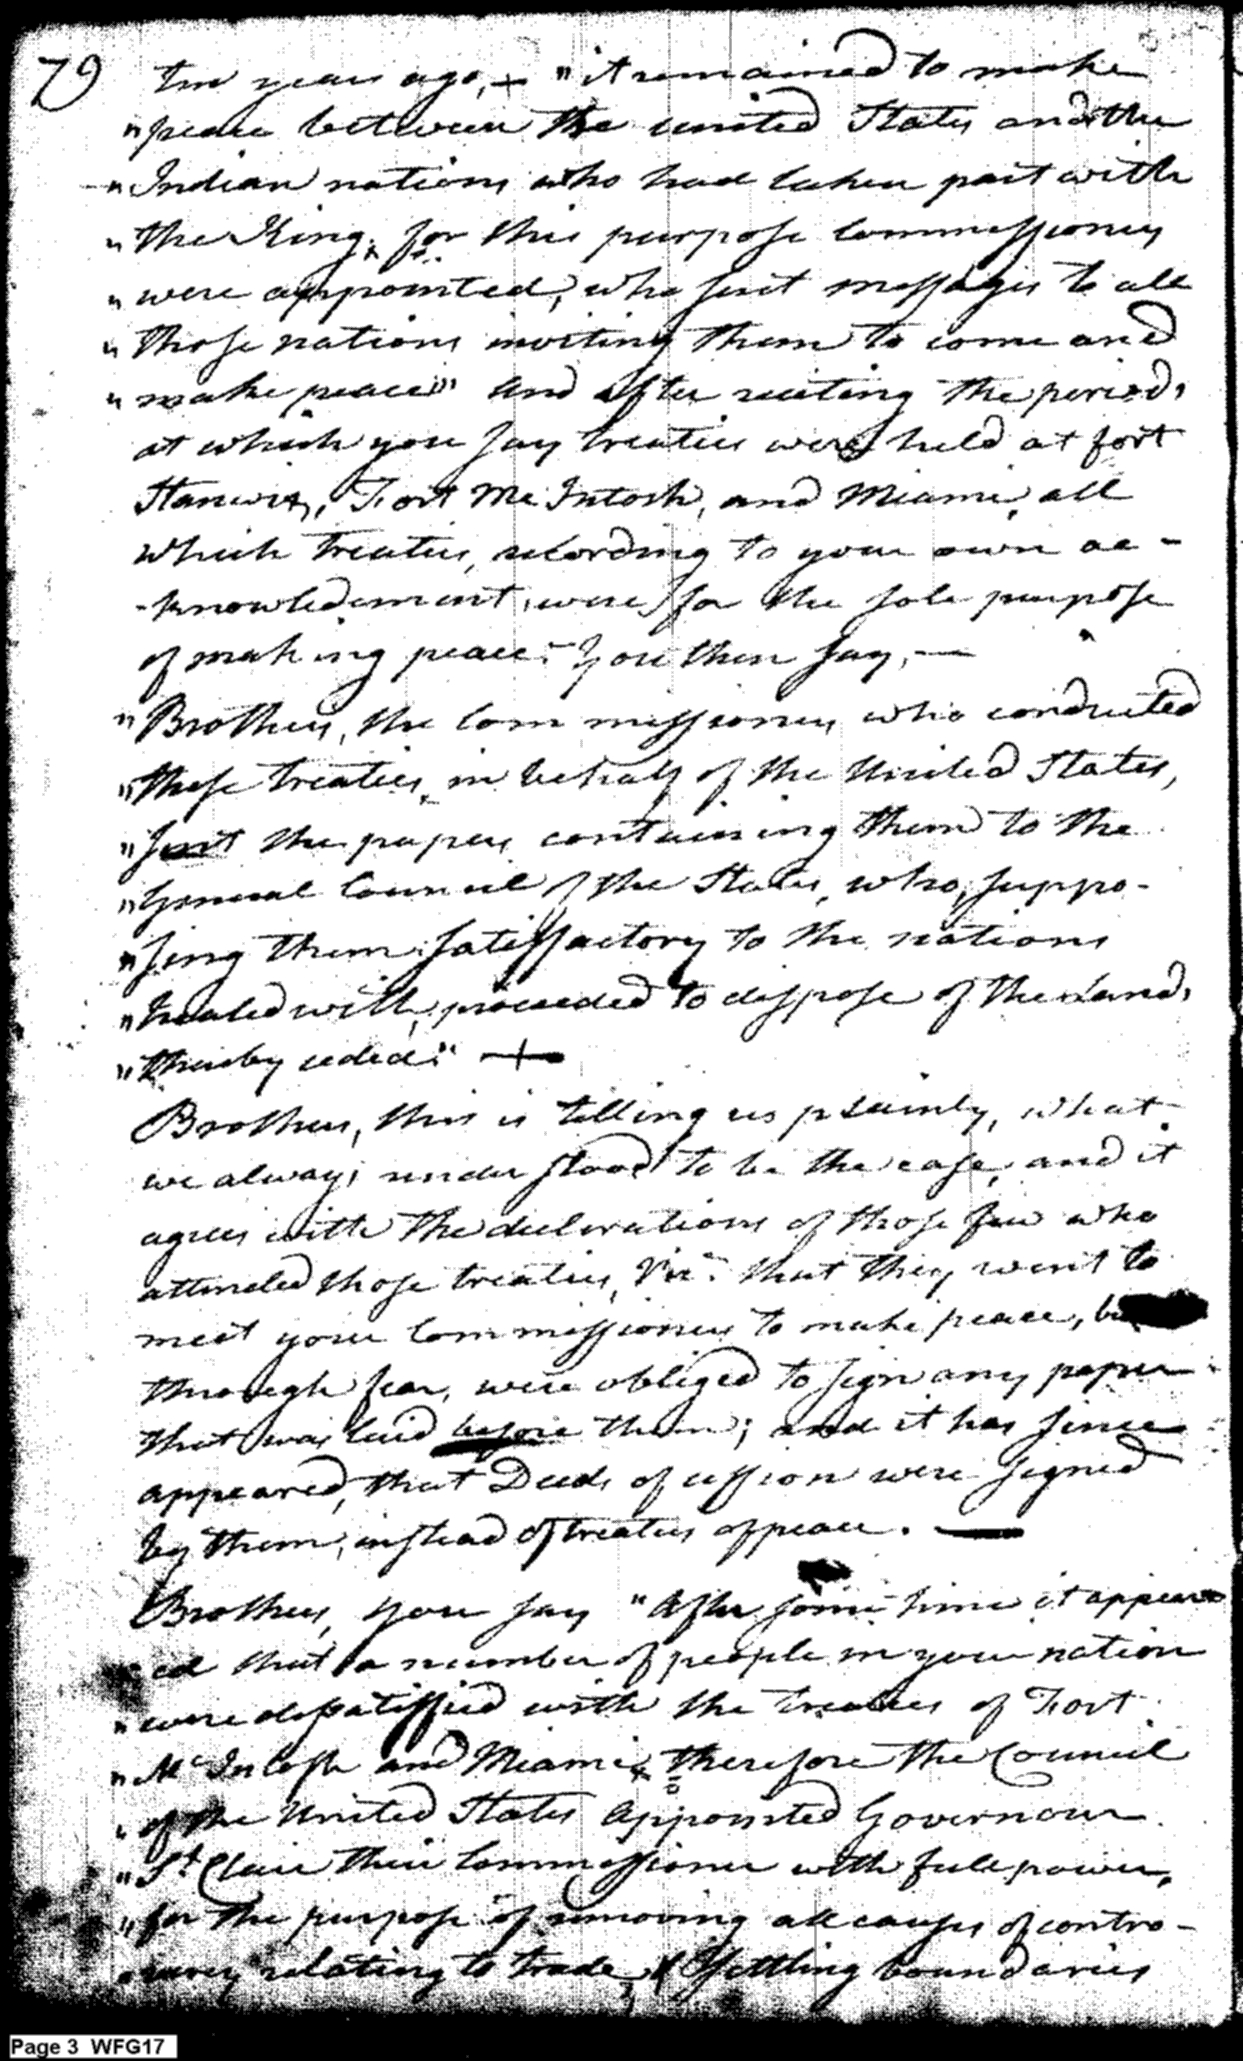 79
Ten years ago, — "it remained to make
"peace between the united States and the
"Indian nations who had taken part with
"the King; for this purpose Commissioners
"were appointed, who sent messages to all
"those nations inviting them to come and
"make peace" and after reciting the periods
at which you say treaties were held at fort
Stanwix, Fort Mc Intosh, and Miami, all
which treaties, according to your own ac-
-knowledement, were for the sole purpose
of making peace. You then say, —
"Brothers, the Commissioners who conducted
"these treaties, in behalf of the United States,
"sent the papers containing them to the
"General Council of the States, who, suppo-
"sing them satisfactory to the nations
"treated with, proceeded to dispose of the Lands
"thereby ceded." —
Brothers, this is telling us plainly, what
we always understood to be the case, and it
agrees with the declarations of those few who
attended those treaties, Viz. that they went to
meet your Commissioners to make peace, but
through fear, were obliged to sign any paper
that was laid before them; and it has since
appeared, that Deeds of cession were signed
by them, instead of treaties of peace. —
Brothers, you say "After some time it appear
"ed that a number of people in your nation
"were dissatisfied with the treaties of Fort
"Mc Intosh and Miami, therefore the Council
"of the United States appointed Governour
"St Clair their Commissioner with full power,
"for the purpose of removing all causes of contro-
"versy relating to trade, & settling boundaries
Page 3 WFG17